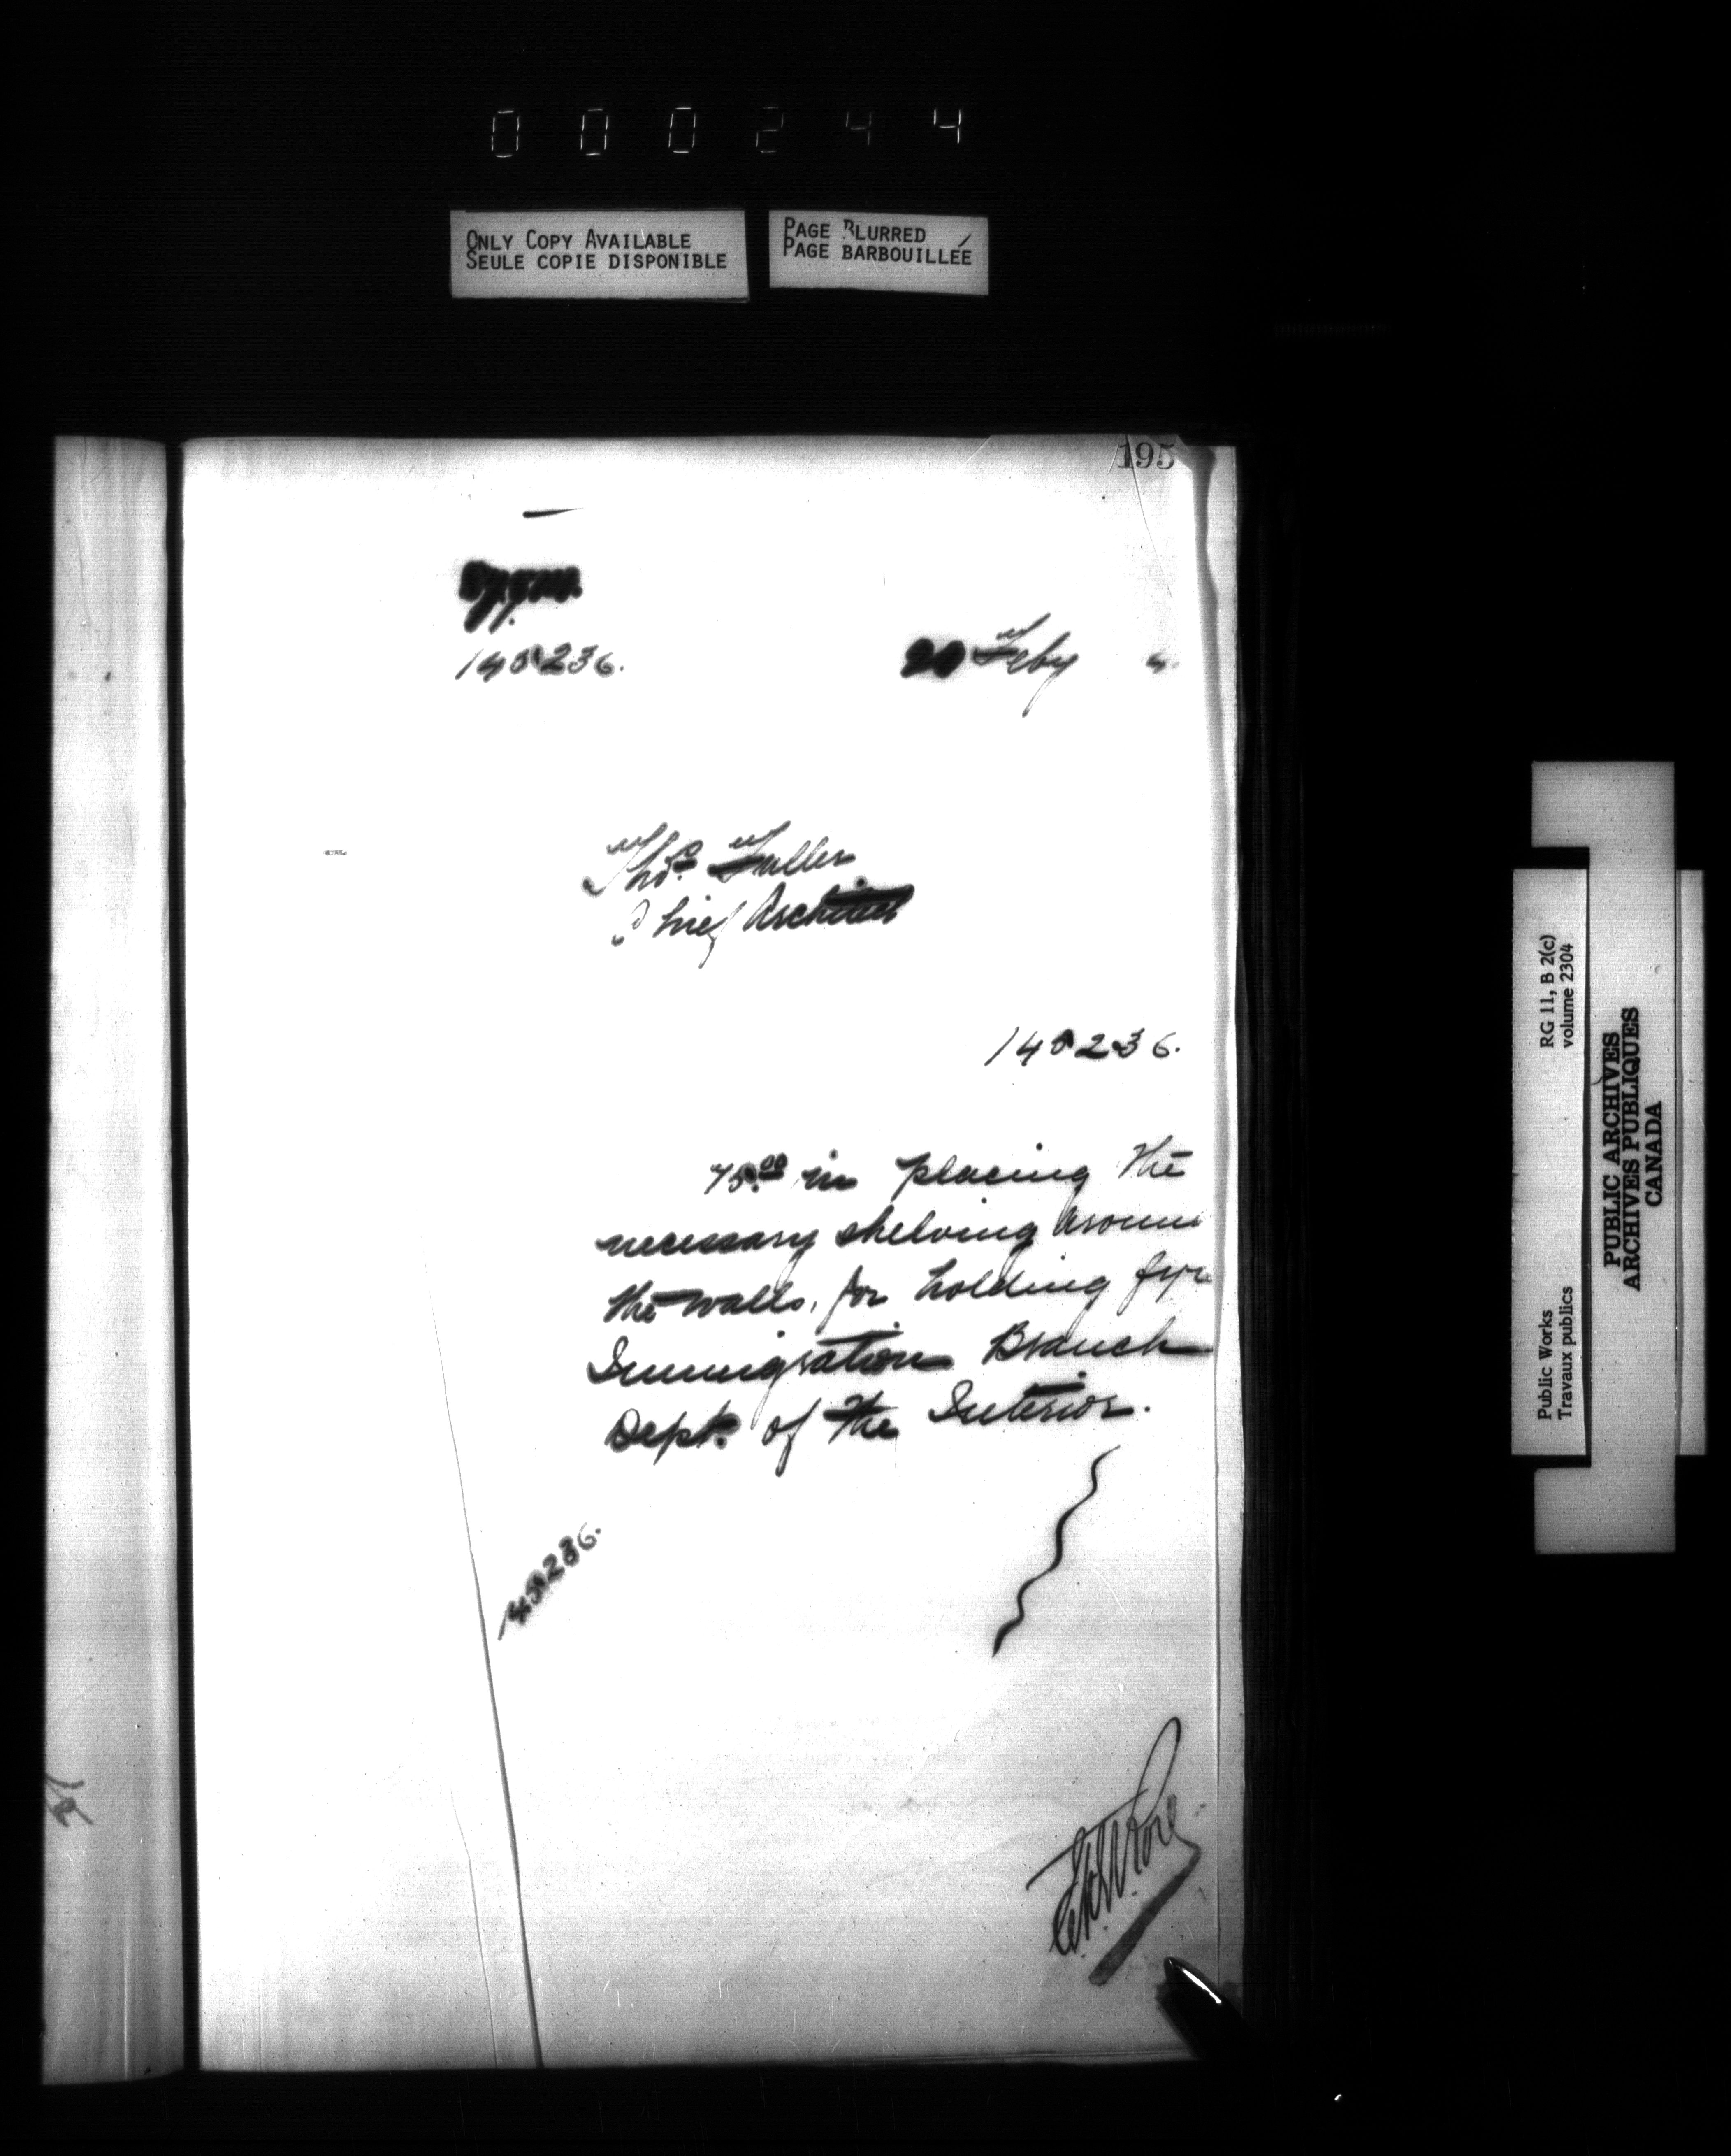 000244
ONLY COPY AVAILABLE
SEULE COPIE DISPONIBLE
PAGE BLURRED
PAGE BARBOUILLÉE
195
145236.
20 Feby 4.
Thos. Fuller
Chief Architect
145236.
75.00 in placing the
necessary shelving aroun
the walls, for holding fyl
Immigration Branch
Dept. of the Interior.
145236.
RG 11, B 2(c)
volume 2304
Public Works
Travaux publics
PUBLIC ARCHIVES
ARCHIVES PUBLIQUES
CANADA